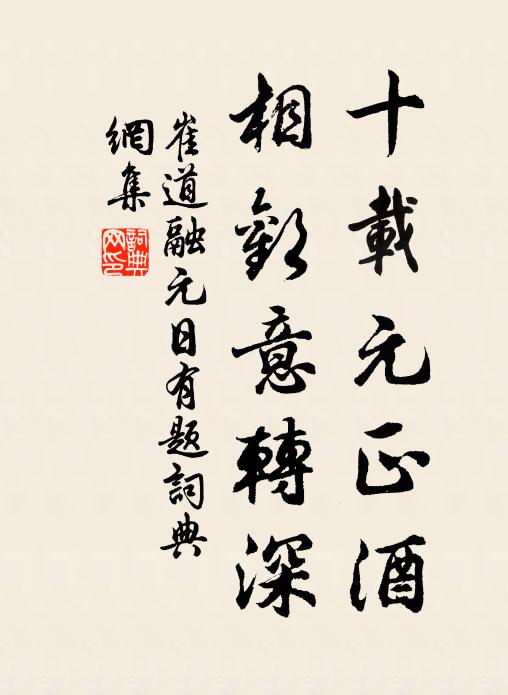 十載元正酒
相歡意轉深
崔道融元日有題詞典
網集
詞典網印